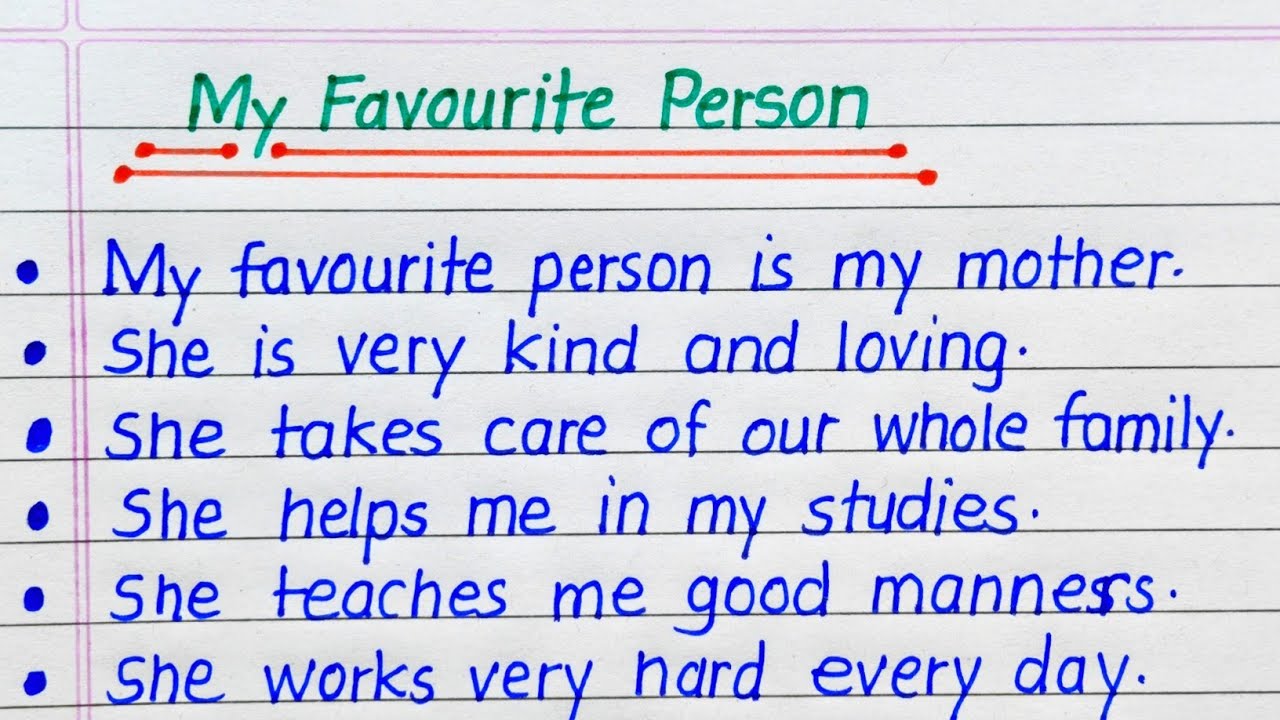 My Favourite Person
• My favourite person is my mother.
• She is very kind and loving.
• She takes care of our whole family.
• She helps me in my studies.
• She teaches me good manners.
• She works very hard every day.